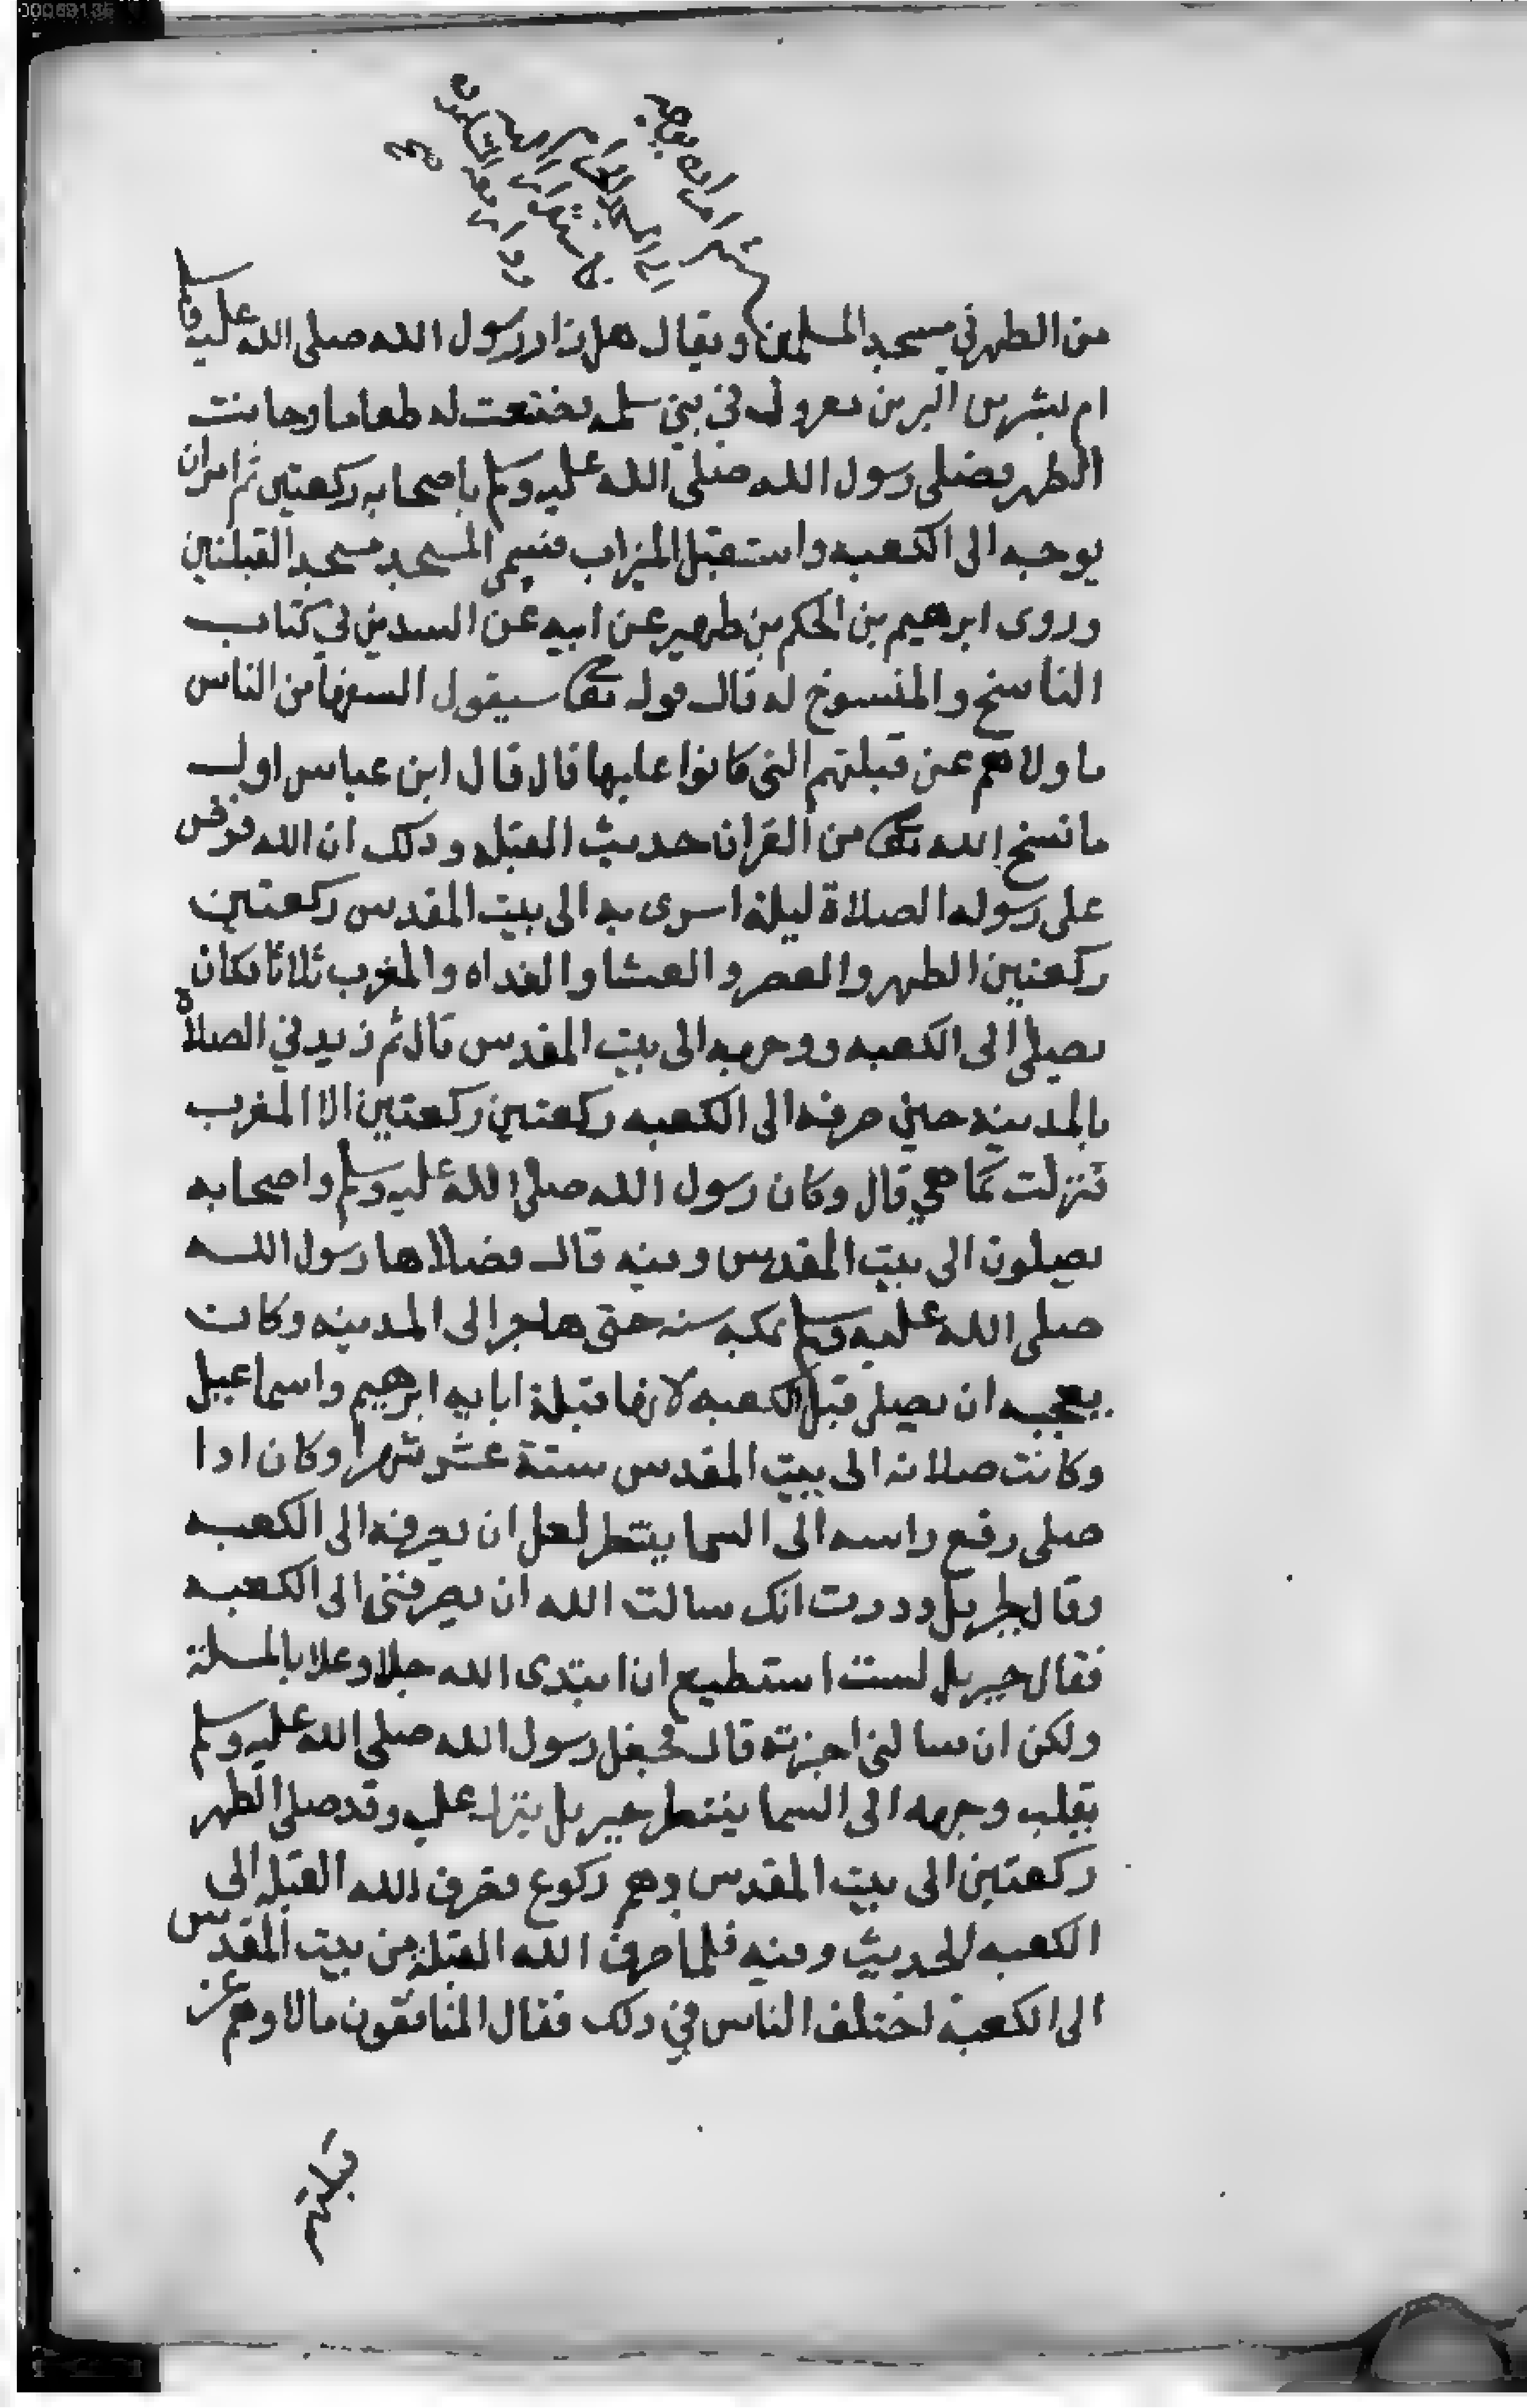 ثم امر ان يوجه
الى المسجد الحرام
فاستدار اليه
ودار معه المسلمون
صح
من الطهر في مسجد المسلمين ويقال هل زار رسول الله صلى الله عليه وسلم
ام بشر بن البر بن معرول في بني سلمه فضنعت له طعاما وحانت
الطهر فصلى رسول الله صلى الله عليه وسلم باصحابه ركعتين ثم امر ان
يوجه الى الكعبه واستقبل الميزاب فسمي المسجد مسجد القبلتين
وروى ابرهيم بن الحكم بن طهير عن ابيه عن السدي في كتاب
الناسخ والمنسوخ له قال قوله تعالى سيقول السفها من الناس
ما ولاهم عن قبلتهم التي كانوا عليها قال قال ابن عباس اول
ما نسخ الله تعالى من القران حديث القبله ودلك ان الله فرض
على رسوله الصلاة ليلة اسرى به الى بيت المقدس ركعتين
ركعتين الطهر والعصر والعشا والغداه والمغرب ثلاثا فكان
يصلي الى الكعبه ووجهه الى بيت المقدس قال ثم زيد في الصلاة
بالمدينه حين صرفه الى الكعبه ركعتين ركعتين الا المغرب
فنزلت كما هي قال وكان رسول الله صلى الله عليه وسلم واصحابه
يصلون الى بيت المقدس وفيه قال فصلاها رسول الله
صلى الله عليه وسلم بمكه سنه حتى هاجر الى المدينه وكان
يعجبه ان يصلي قبل الكعبه لانها قبلة ابايه ابرهيم واسماعيل
وكانت صلاته الى بيت المقدس ستة عشر شهرا وكان ادا
صلى رفع راسه الى السما ينتطر لعل ان يصرفه الى الكعبه
وقال لجبريل وددت انك سالت الله ان يصرفني الى الكعبه
فقال جبريل لست استطيع ان ابتدى الله جلا وعلا بالمسلة
ولكن ان سالني اجزته قال فجعل رسول الله صلى الله عليه وسلم
يقلب وجهه الى السما ينتطر جبريل ينزل عليه وقد صلى الطهر
ركعتين الى بيت المقدس وهم ركوع فصرف الله القبله الى
الكعبه الحديث وفيه فلما صرف الله القبلة من بيت المقدس
الى الكعبة اختلف الناس في دلك فقال المنافقون مالاوهم عن
قبلتهم